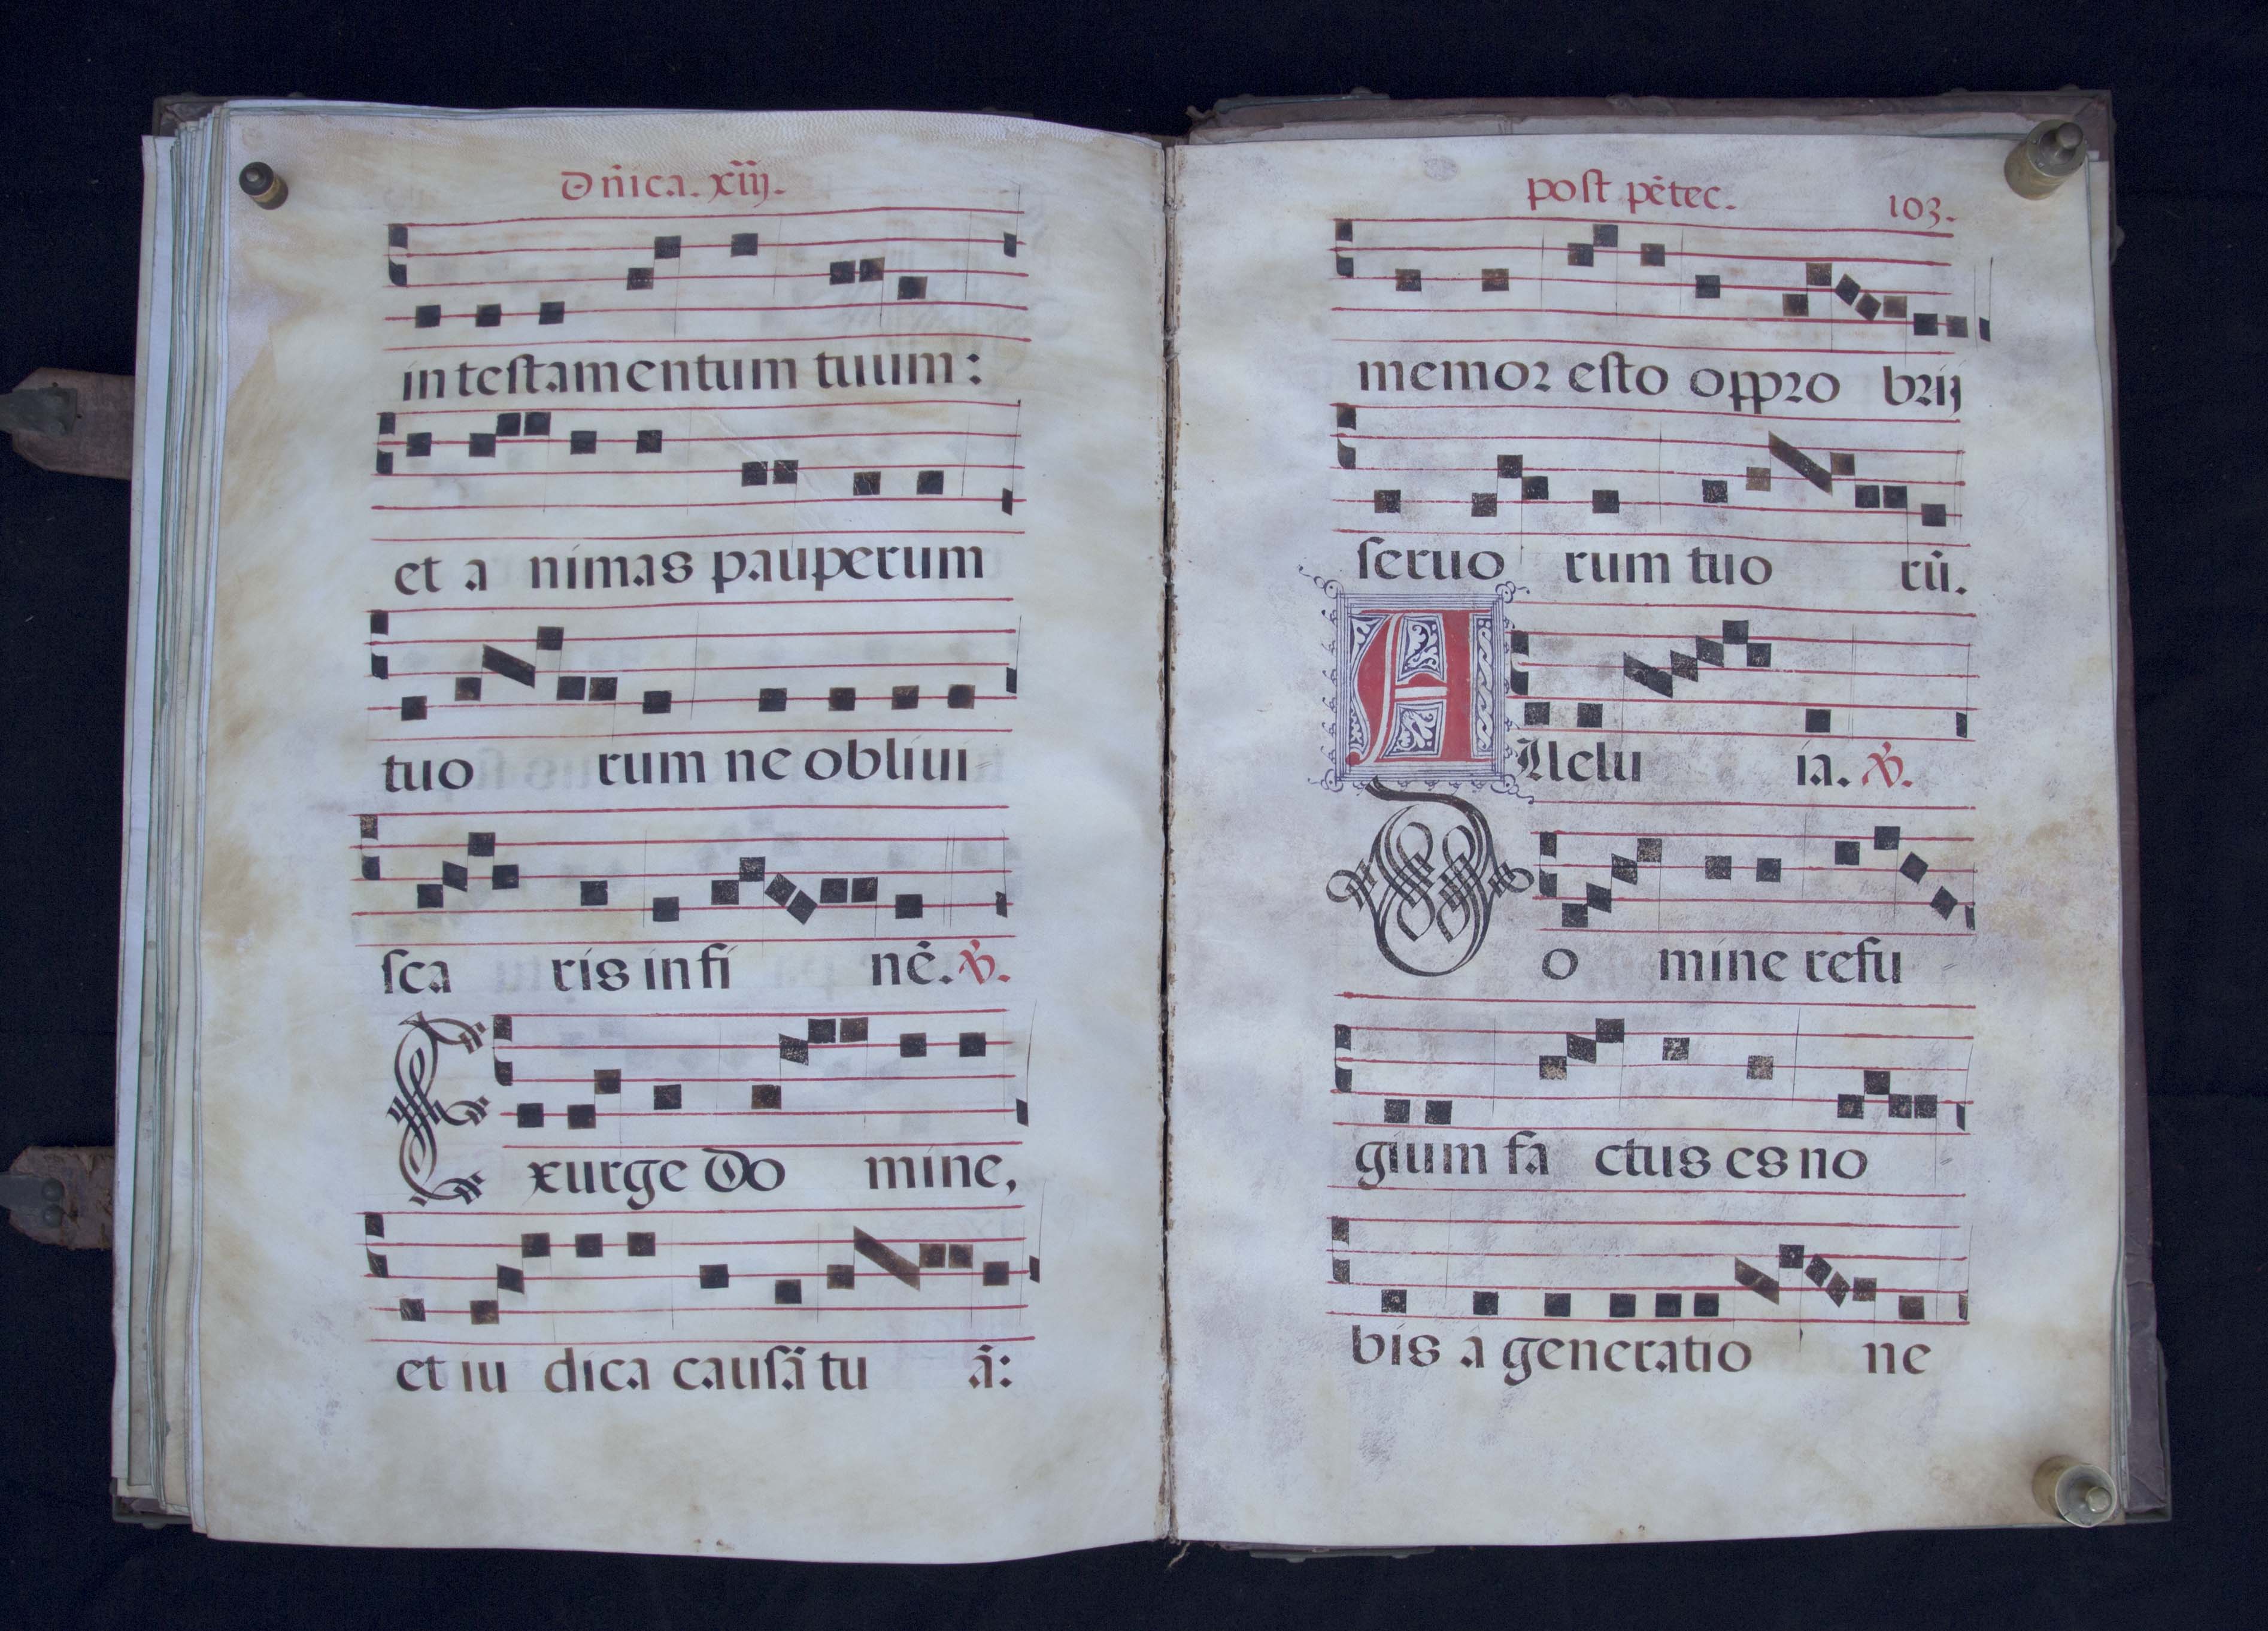 Dn̄ica. xiij.
in testamentum tuum:
et a nimas pauperum
tuo rum ne obliui
sca ris in fi nē. ℣.
Exurge Do mine,
et iu dica causā tu ā:
post pētec. 103.
memor esto oppro brij
seruo rum tuo rū.
Allelu ia. ℣.
Do mine refu
gium fa ctus es no
bis á generatio ne